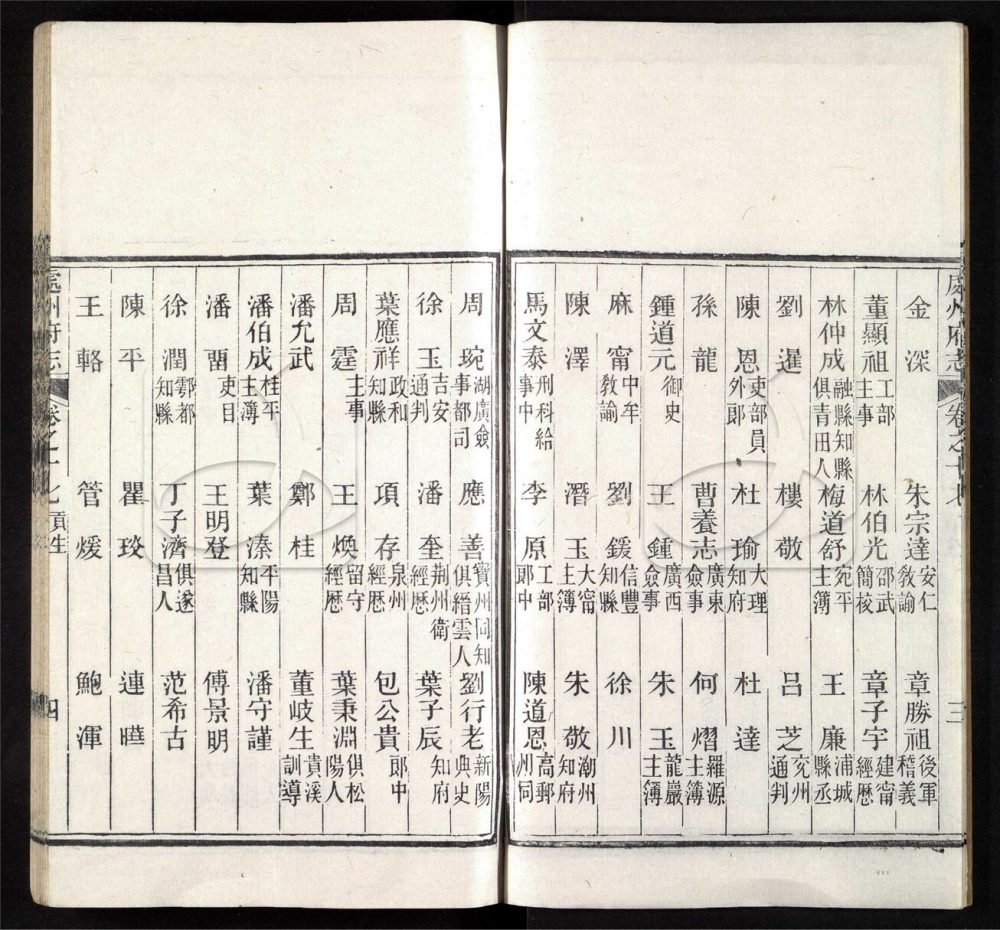 處州府志 卷之十七 三
金深 朱宗達安仁教諭 章勝祖後軍稽義
董顯祖工部主事 林伯光邵武簡校 章子宇建甯經歷
林仲成融縣知縣俱青田人 梅道舒宛平主簿 王廉浦城縣丞
劉暹 樓敬 呂芝兗州通判
陳恩吏部員外郎 杜瑜大理知府 杜達
孫龍 曹養志廣東僉事 何熠羅源主簿
鍾道元御史 王鍾廣西僉事 朱玉龍巖主簿
麻甯中牟教諭 劉鍰信豐知縣 徐川
陳澤 潛玉大甯主簿 朱敬潮州知府
馬文泰刑科給事中 李原工部郎中 陳道恩高郵州同
周琬湖廣僉事都司 應善寶州同知俱縉雲人 劉行老新陽典史
徐玉吉安通判 潘奎荆州衛經歷 葉子辰知府
葉應祥政和知縣 項存泉州經歷 包公貴郎中
周霆主事 王煥留守經歷 葉秉淵俱松陽人
潘允武 鄭桂 董岐生貴溪訓導
潘伯成桂平主簿 葉溱平陽知縣 潘守謹
潘畱吏目 王明登 傅景明
徐潤鄠都知縣 丁子濟俱遂昌人 范希古
陳平 瞿琰 連曛
王輅 管煖 鮑渾
處州府志 卷之十七 貢生 四